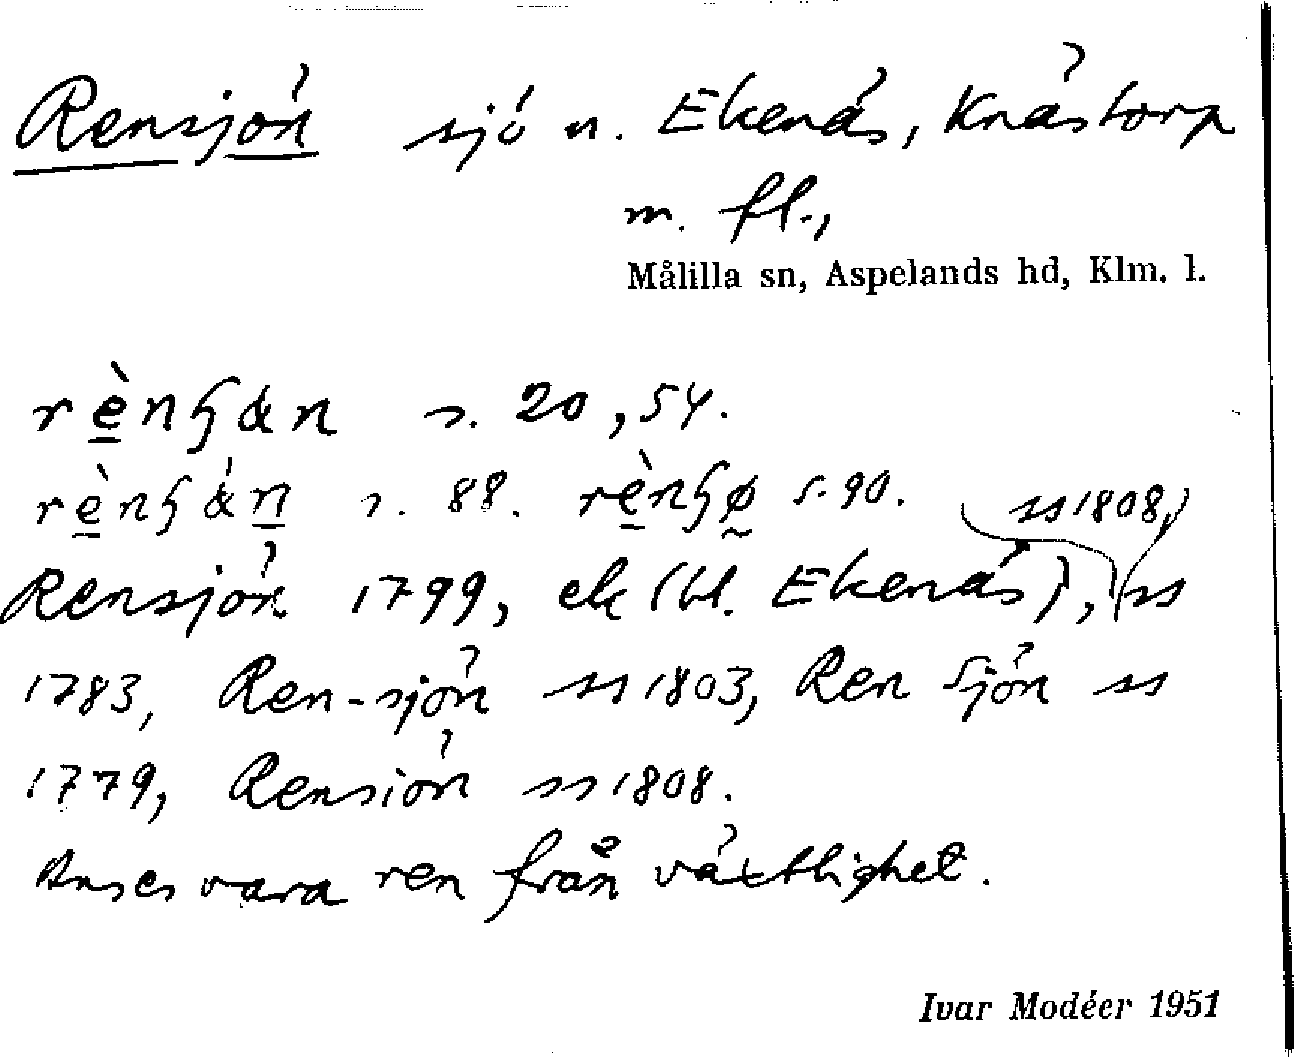 Rensjön sjö n. Ekenäs, Knästorp
m. fl.,
Målilla sn, Aspelands hd, Klm. l.
s. 20, 54.
s. 88. s. 90. ss 1808,
Rensjön 1799, ek (bl. Ekenäs), ss
1783, Ren-sjön ss 1803, Ren Sjön ss
1779, Rensiön ss 1808.
Anses vara ren från växtlighet.
Ivar Modéer 1951